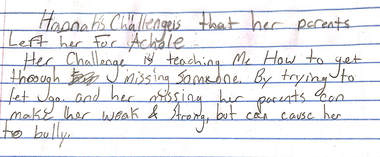 Hannah's Challengeis that her parents
Left her For Achole.
Her Challenge is teaching Me How to get
through missing Someone. By trying to
let go. and her missing her parents can
make her weak & Strong, but can cause her
to bully.